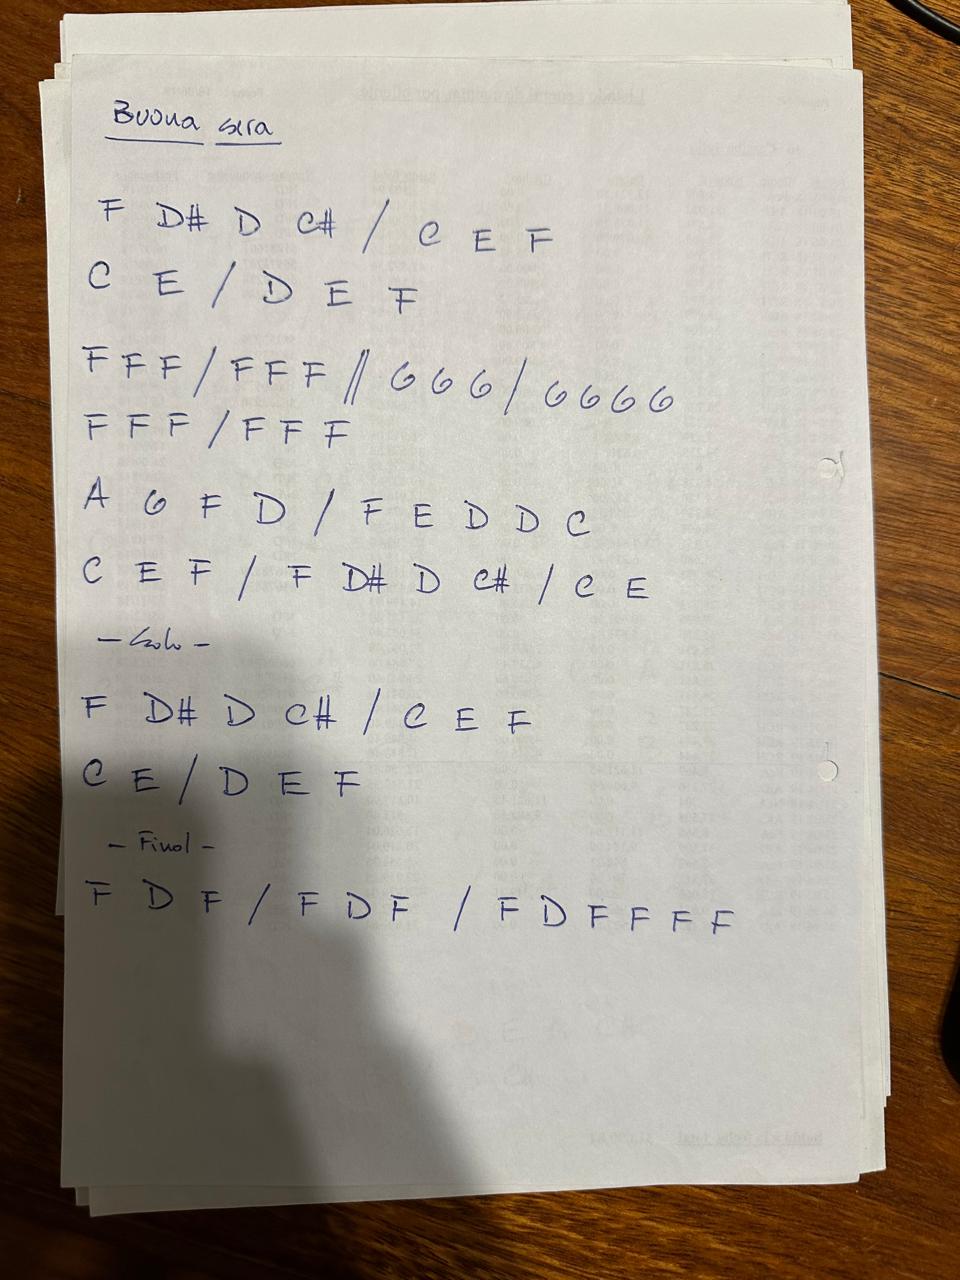 Buona sera
F D# D C# / C E F
C E / D E F
F F F / F F F // G G G / G G G G
F F F / F F F
A G F D / F E D D C
C E F / F D# D C# / C E
- Solo -
F D# D C# / C E F
C E / D E F
- Final -
F D F / F D F / F D F F F F